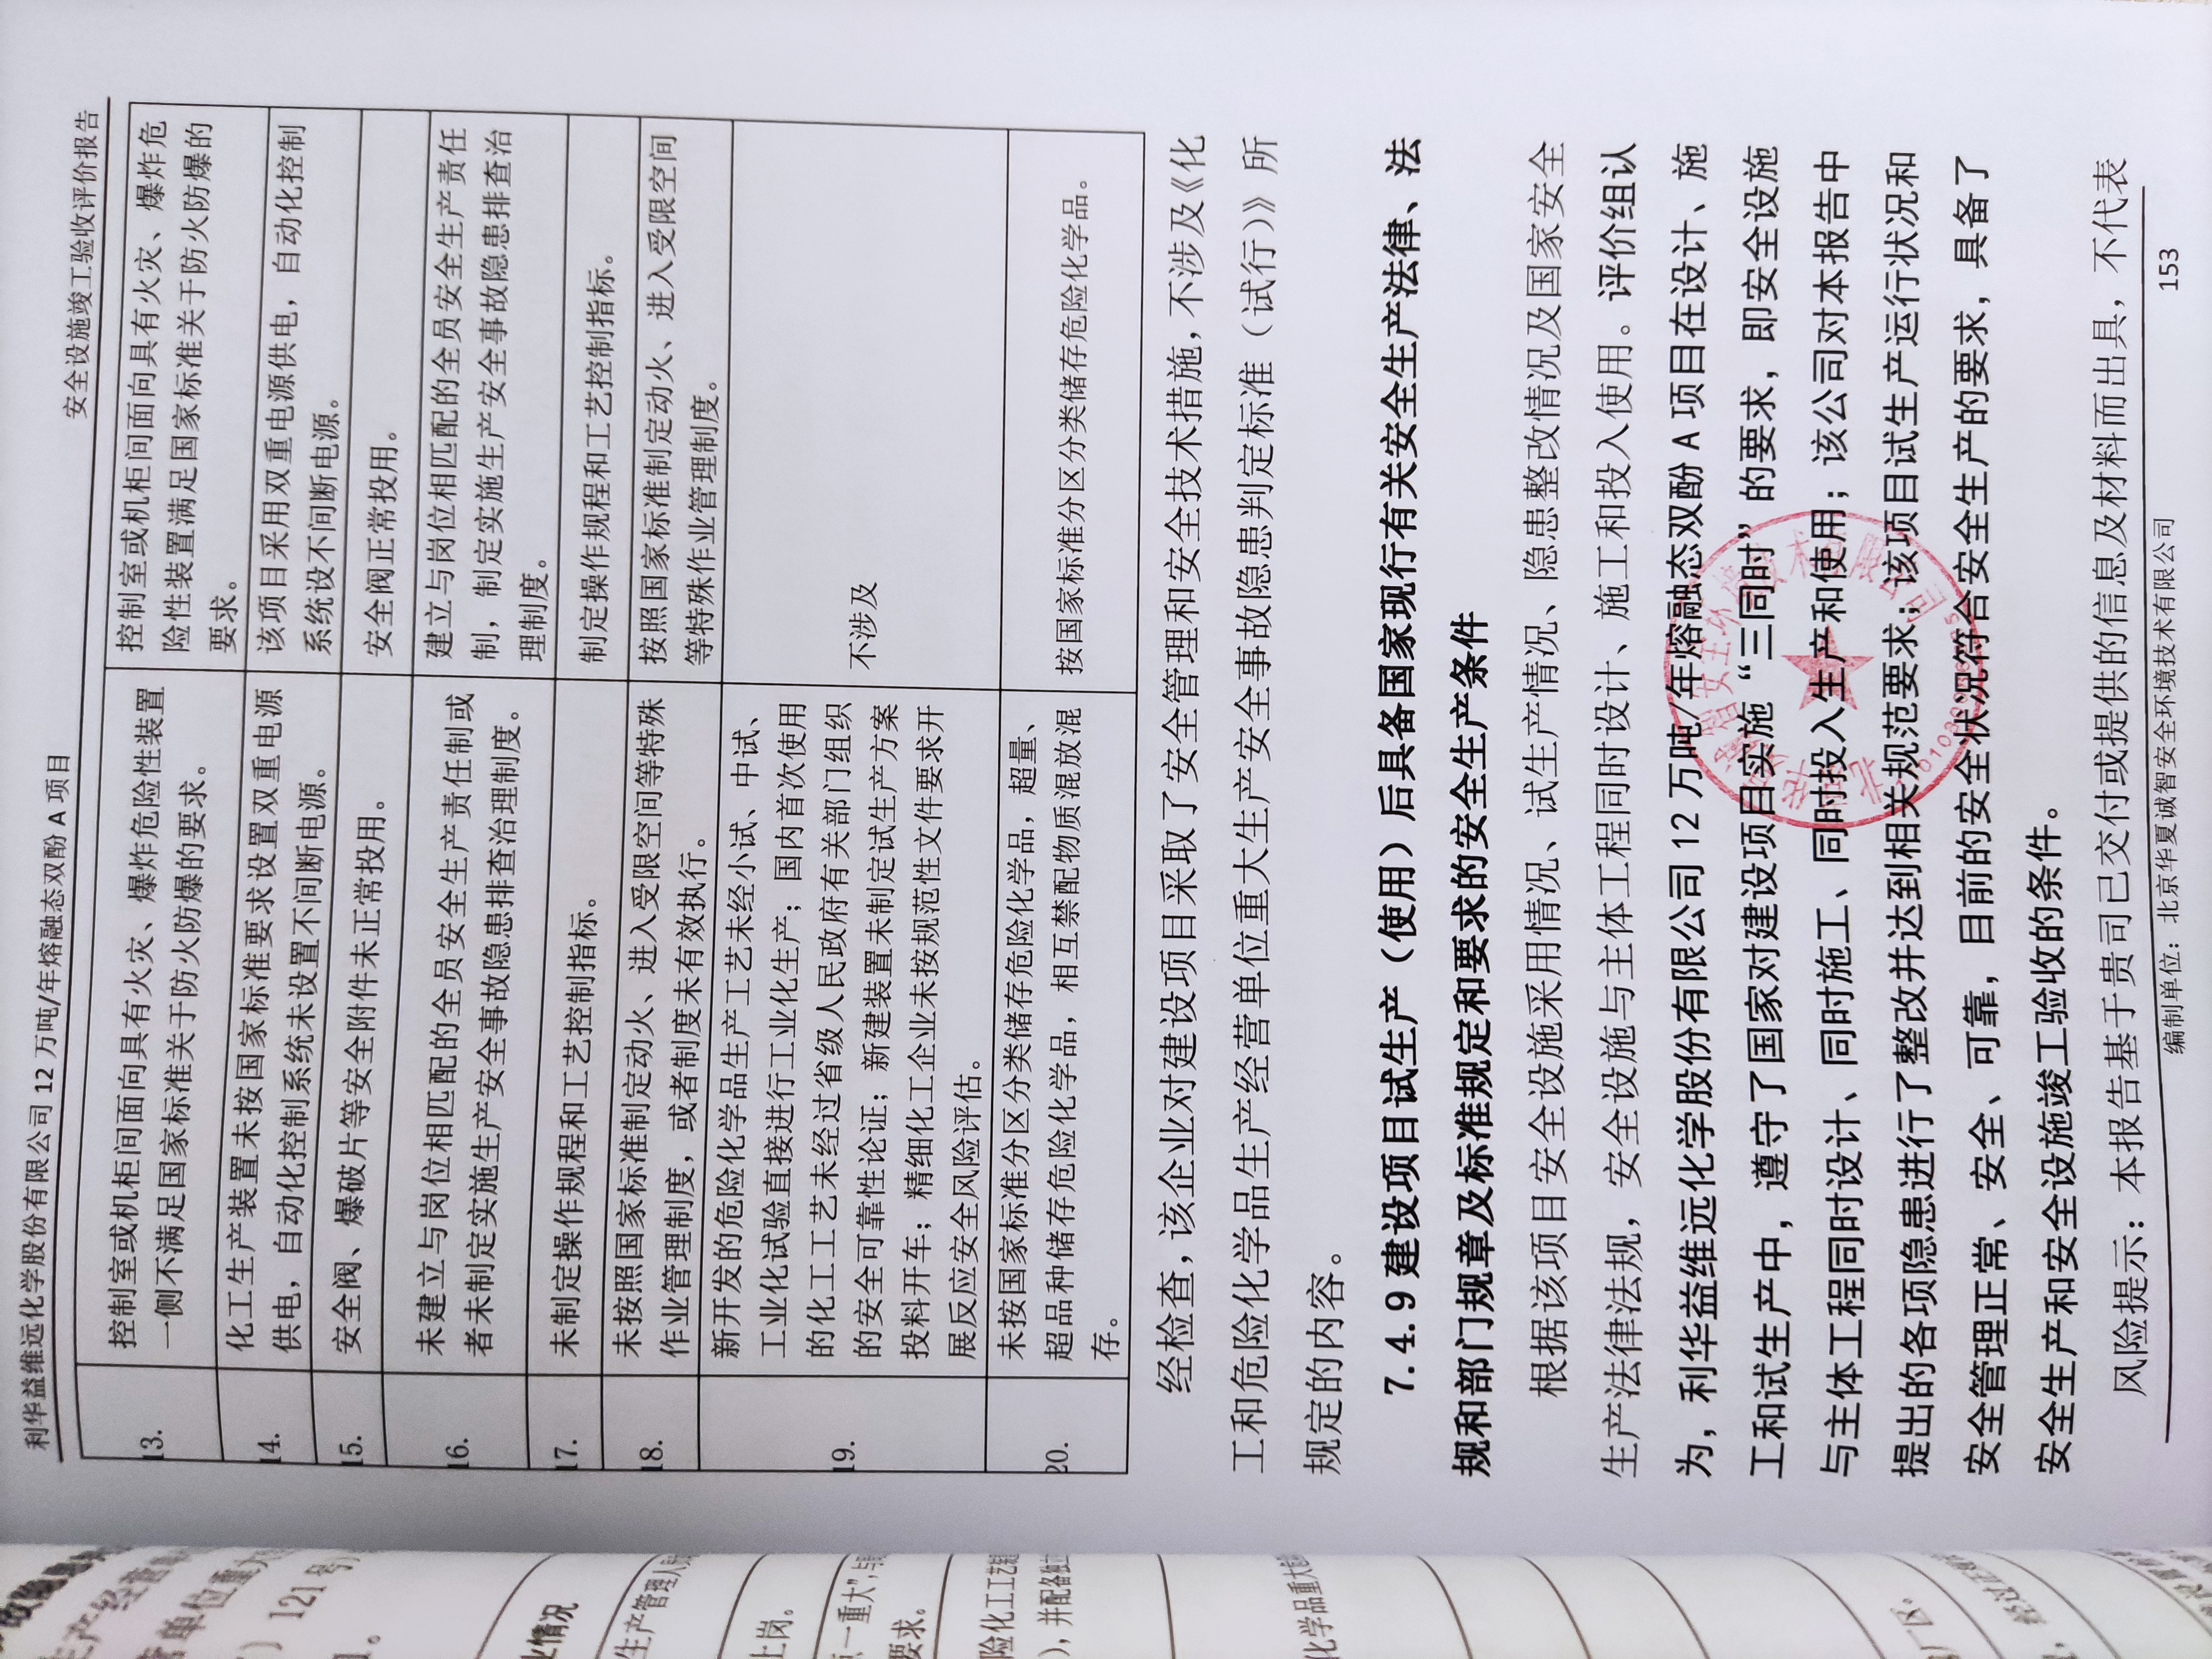 利华益维远化学股份有限公司 12 万吨/年熔融态双酚 A 项目
安全设施竣工验收评价报告
13.
控制室或机柜间面向具有火灾、爆炸危险性装置
一侧不满足国家标准关于防火防爆的要求。
控制室或机柜间面向具有火灾、爆炸危
险性装置满足国家标准关于防火防爆的
要求。
14.
化工生产装置未按国家标准要求设置双重电源
供电，自动化控制系统未设置不间断电源。
该项目采用双重电源供电，自动化控制
系统设不间断电源。
15.
安全阀、爆破片等安全附件未正常投用。
安全阀正常投用。
16.
未建立与岗位相匹配的全员安全生产责任制或
者未制定实施生产安全事故隐患排查治理制度。
建立与岗位相匹配的全员安全生产责任
制，制定实施生产安全事故隐患排查治
理制度。
17.
未制定操作规程和工艺控制指标。
制定操作规程和工艺控制指标。
18.
未按照国家标准制定动火、进入受限空间等特殊
作业管理制度，或者制度未有效执行。
按照国家标准制定动火、进入受限空间
等特殊作业管理制度。
19.
新开发的危险化学品生产工艺未经小试、中试、
工业化试验直接进行工业化生产；国内首次使用
的化工工艺未经过省级人民政府有关部门组织
的安全可靠性论证；新建装置未制定试生产方案
投料开车；精细化工企业未按规范性文件要求开
展反应安全风险评估。
不涉及
20.
未按国家标准分区分类储存危险化学品，超量、
超品种储存危险化学品，相互禁配物质混放混
存。
按国家标准分区分类储存危险化学品。
经检查，该企业对建设项目采取了安全管理和安全技术措施，不涉及《化
工和危险化学品生产经营单位重大生产安全事故隐患判定标准（试行）》所
规定的内容。
7.4.9 建设项目试生产（使用）后具备国家现行有关安全生产法律、法
规和部门规章及标准规定和要求的安全生产条件
根据该项目安全设施采用情况、试生产情况、隐患整改情况及国家安全
生产法律法规，安全设施与主体工程同时设计、施工和投入使用。评价组认
为，利华益维远化学股份有限公司 12 万吨/年熔融态双酚 A 项目在设计、施
工和试生产中，遵守了国家对建设项目实施“三同时”的要求，即安全设施
与主体工程同时设计、同时施工、同时投入生产和使用；该公司对本报告中
提出的各项隐患进行了整改并达到相关规范要求；该项目试生产运行状况和
安全管理正常、安全、可靠，目前的安全状况符合安全生产的要求，具备了
安全生产和安全设施竣工验收的条件。
风险提示：本报告基于贵司已交付或提供的信息及材料而出具，不代表
编制单位：北京华夏诚智安全环境技术有限公司
153